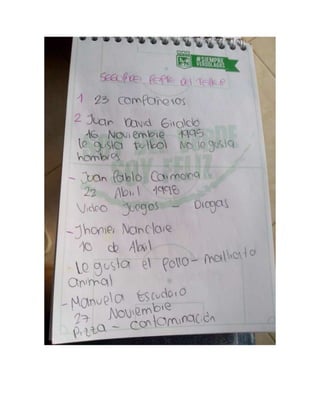 #SIEMPRE
VERDOLAGAS
1 23 compañeros
2 Juan David Giraldo
16 Noviembre 1995
le gusta futbol No le gusta
hombres
- Juan Pablo Carmona
22 Abril 1998
Video Juegos - Drogas
- Jhonier Nanclare
10 de Abril
- Le gusta el Pollo - maltrato
animal
- Manuela Escudero
27 Noviembre
Pizza - contaminación
SOY FELIZ